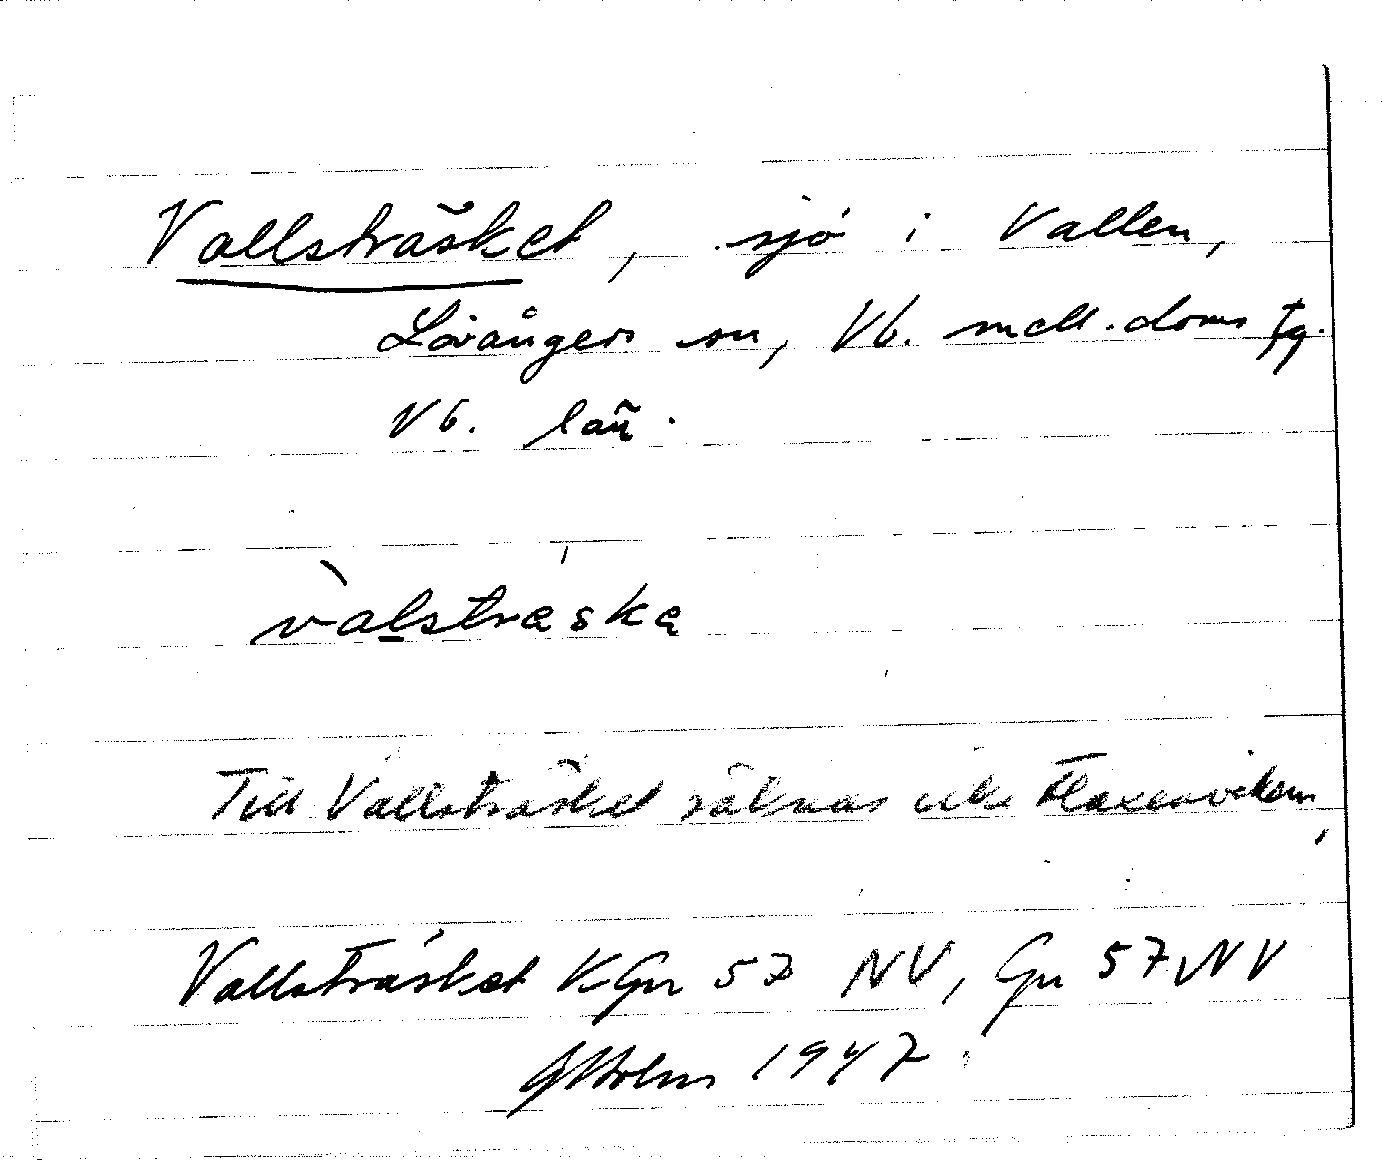 Vallsträsket, sjö i Vallen,
Lövångers sn, Vb. mell. doms tg.
Vb. län.
vàlstrˈęską
Till Vallsträsket räknas icke Flaxenviken,
Vallsträsket KGn 57 NV, Gn 57 NV
GHolm 1947